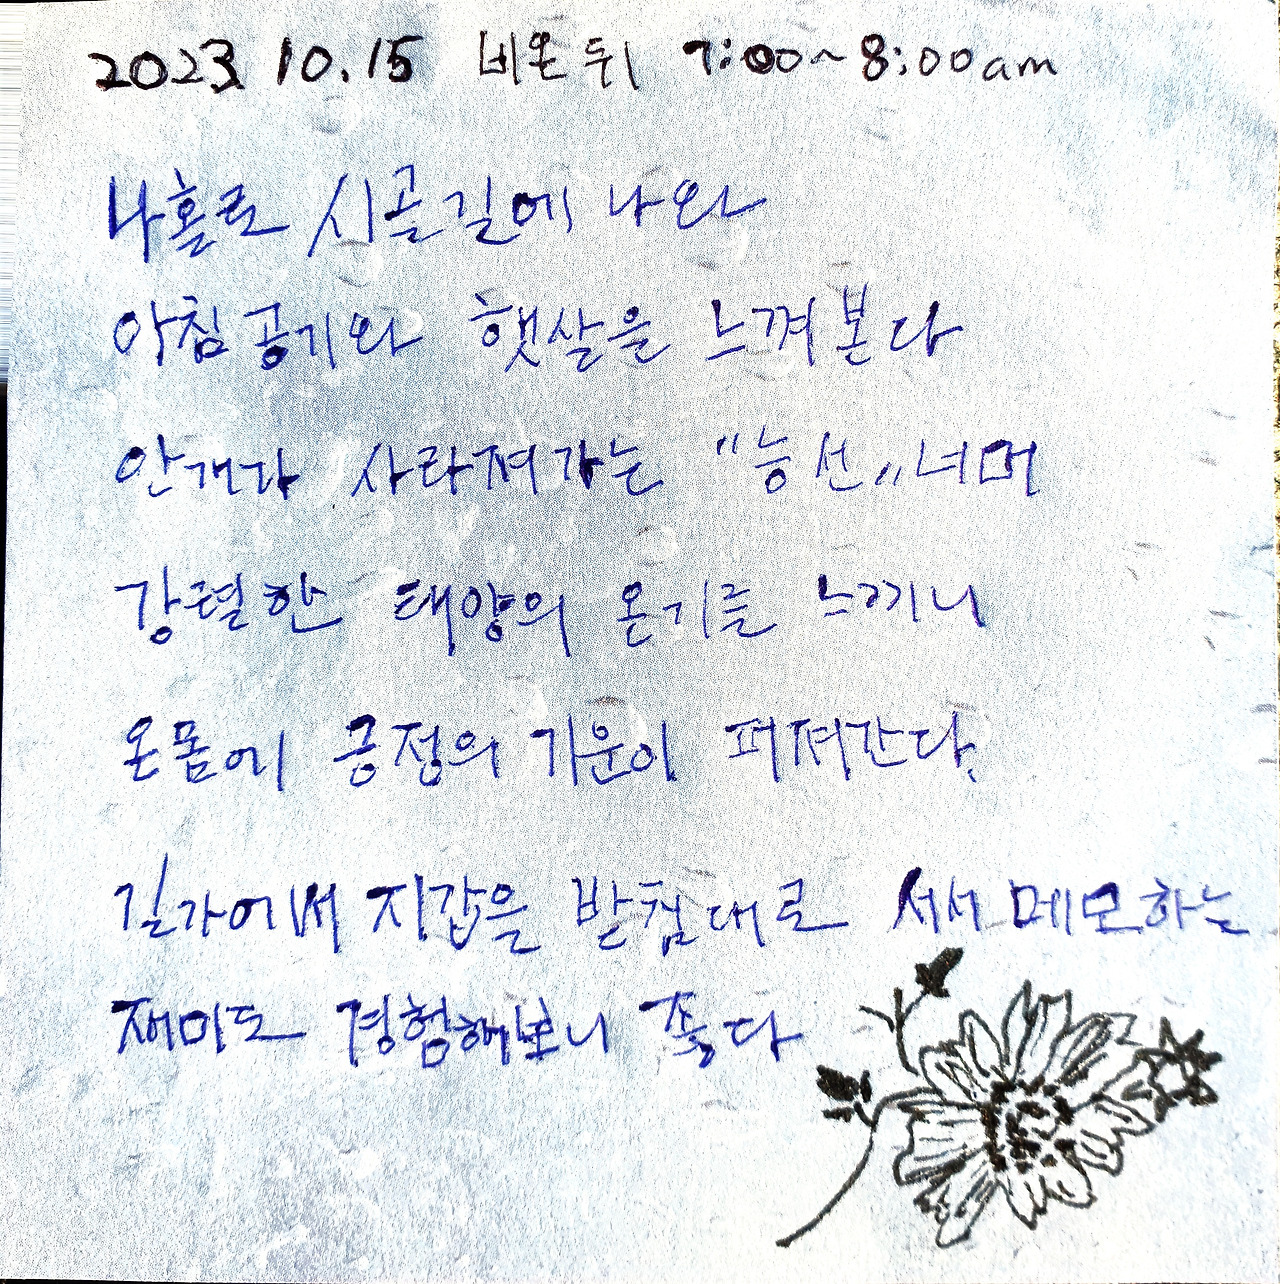 2023. 10. 15 비온 뒤 7:00~8:00am
나홀로 시골길에 나와
아침공기와 햇살을 느껴본다
안개가 사라져가는 "능선" 너머
강렬한 태양의 온기를 느끼니
온몸에 긍정의 기운이 퍼져간다.
길가에서 지갑을 받침대로 서서 메모하는
재미도 경험해보니 좋다